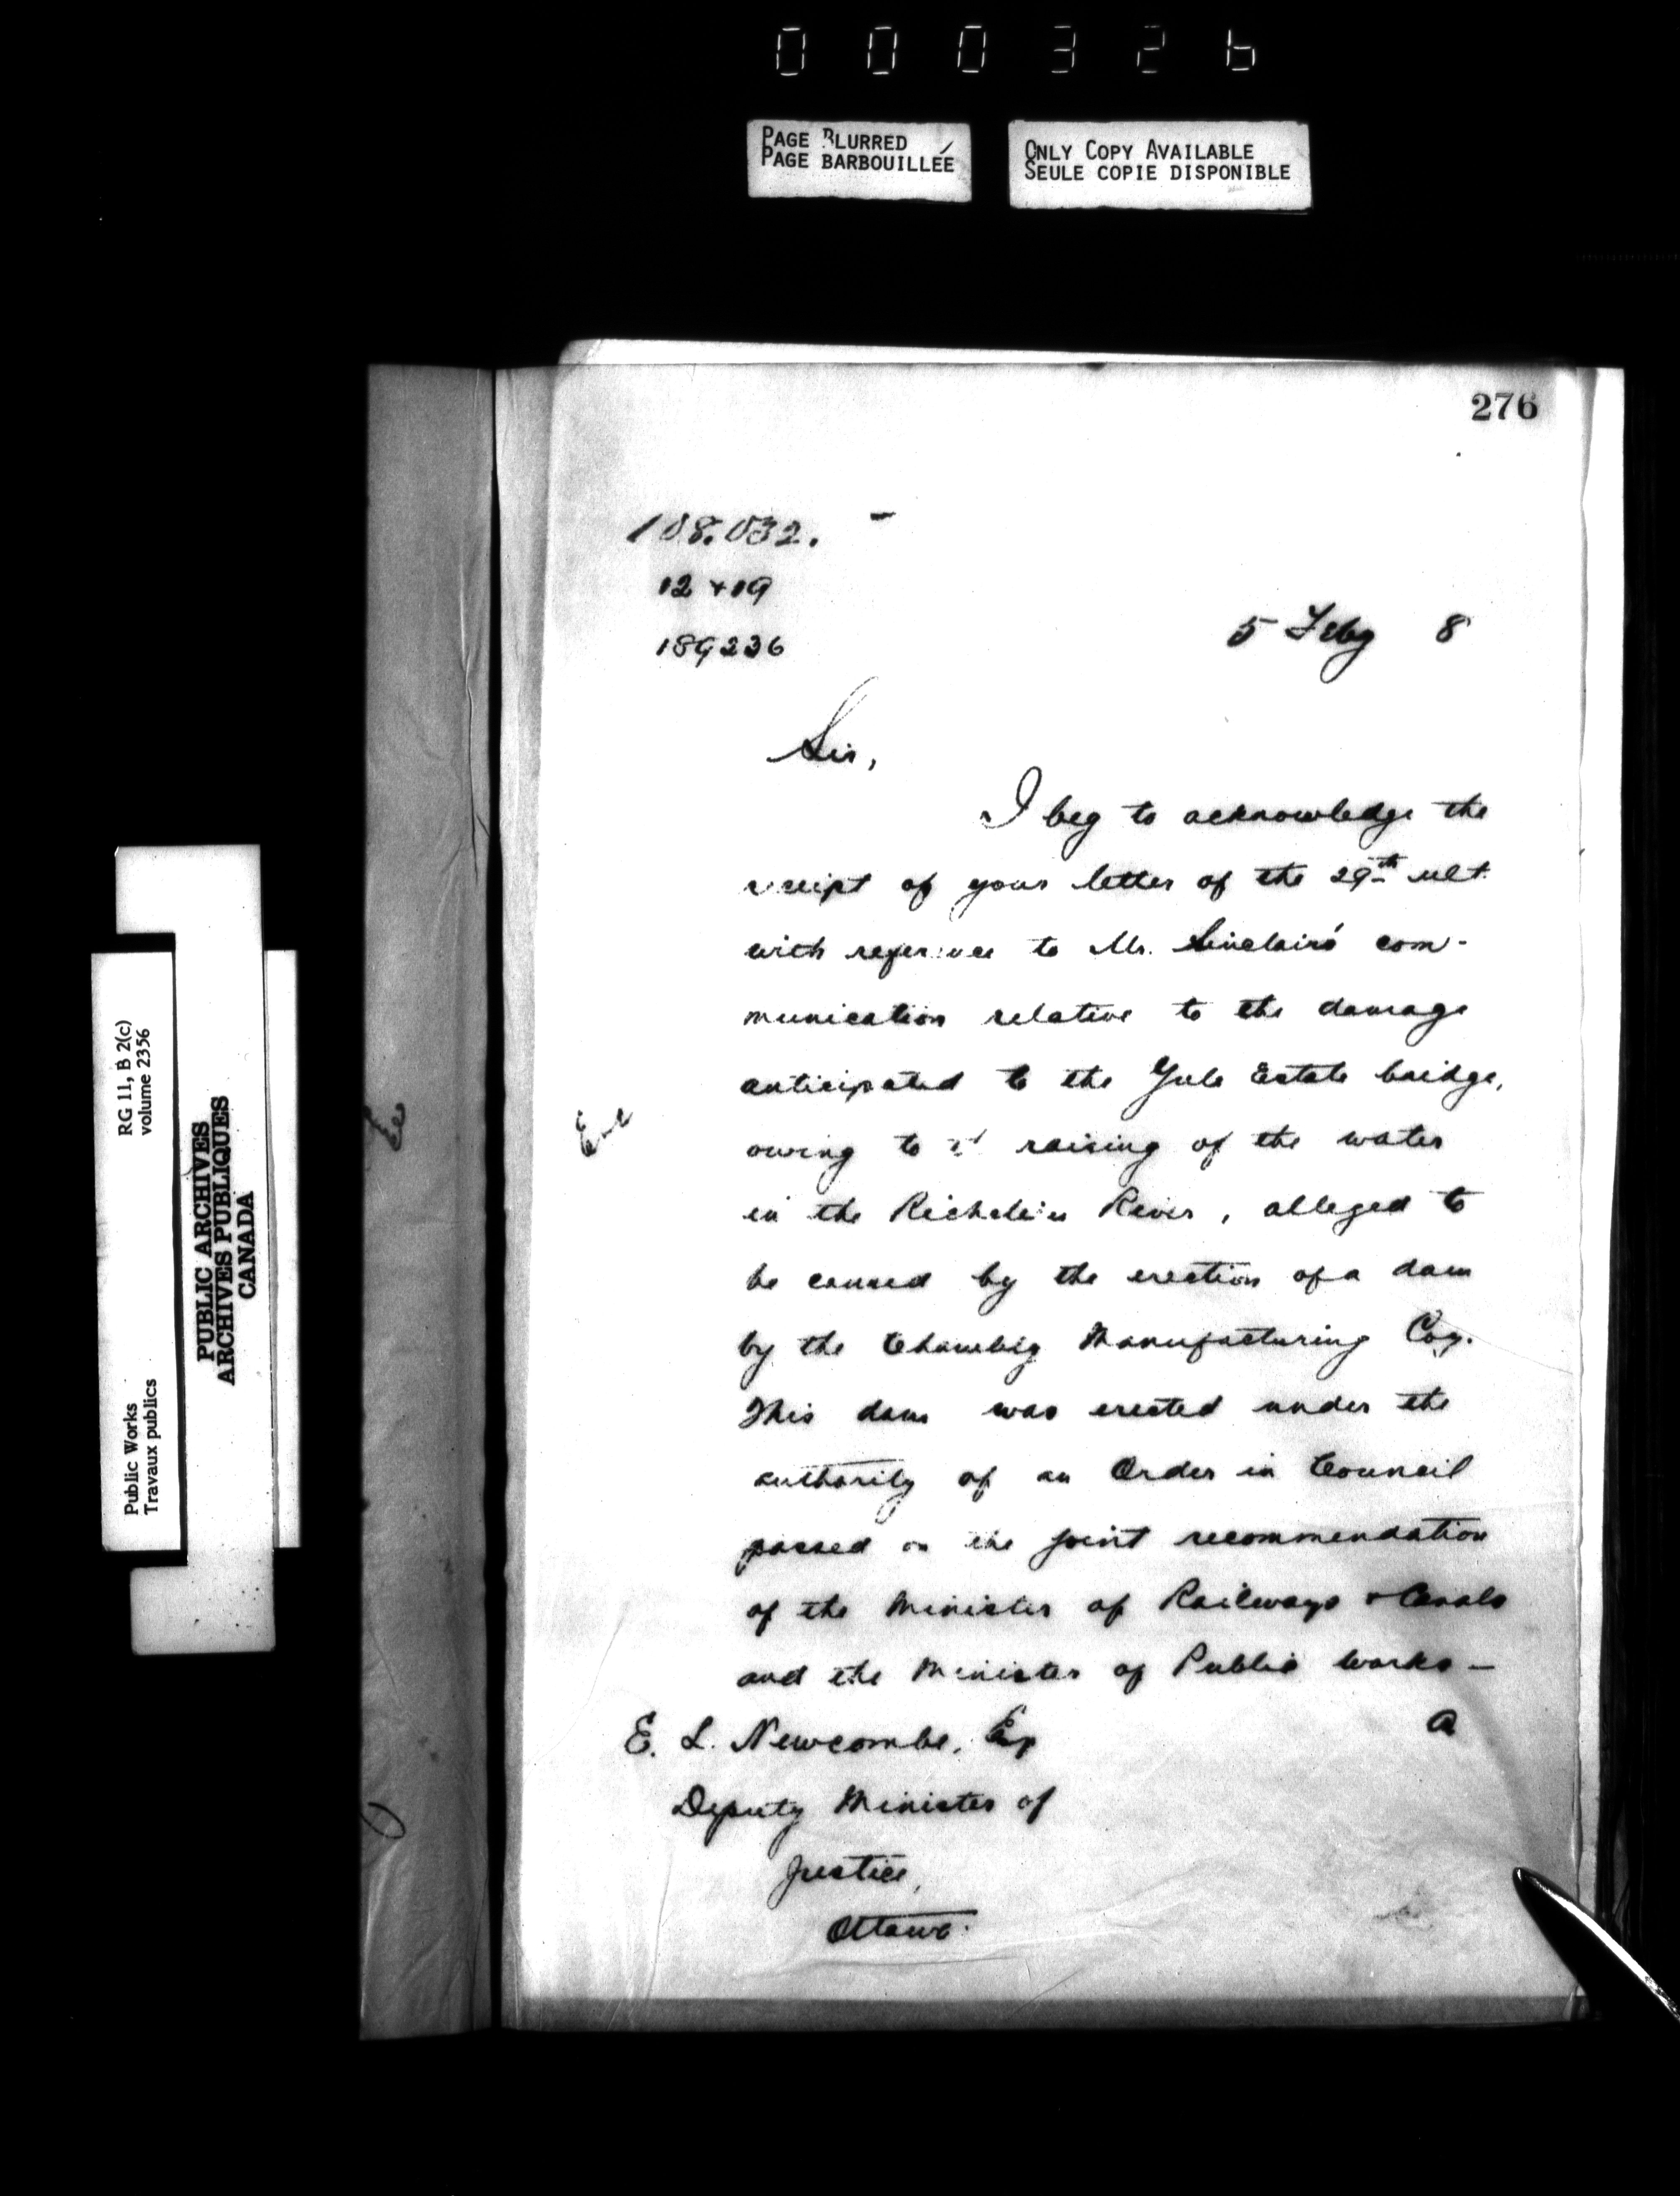 000326
PAGE BLURRED
PAGE BARBOUILLÉE
ONLY COPY AVAILABLE
SEULE COPIE DISPONIBLE
276
108.032.
12 + 19
189236
5 Feby 8
Sir,
I beg to acknowledge the
receipt of your letter of the 29th ult.
with reference to Mr. Sinclair's com-
munication relative to the damage
anticipated to the Yule Estate bridge,
owing to raising of the water
in the Richelieu River, alleged to
be caused by the erection of a dam
by the Chambly Manufacturing Coy.
This dam was erected under the
authority of an Order in Council
passed on the joint recommendation
of the Minister of Railways & Canals
and the Minister of Public Works -
A
E. L. Newcombe, Esq
Deputy Minister of
Justice,
Ottawa.
RG 11, B 2(c)
volume 2356
PUBLIC ARCHIVES
ARCHIVES PUBLIQUES
CANADA
Public Works
Travaux publics